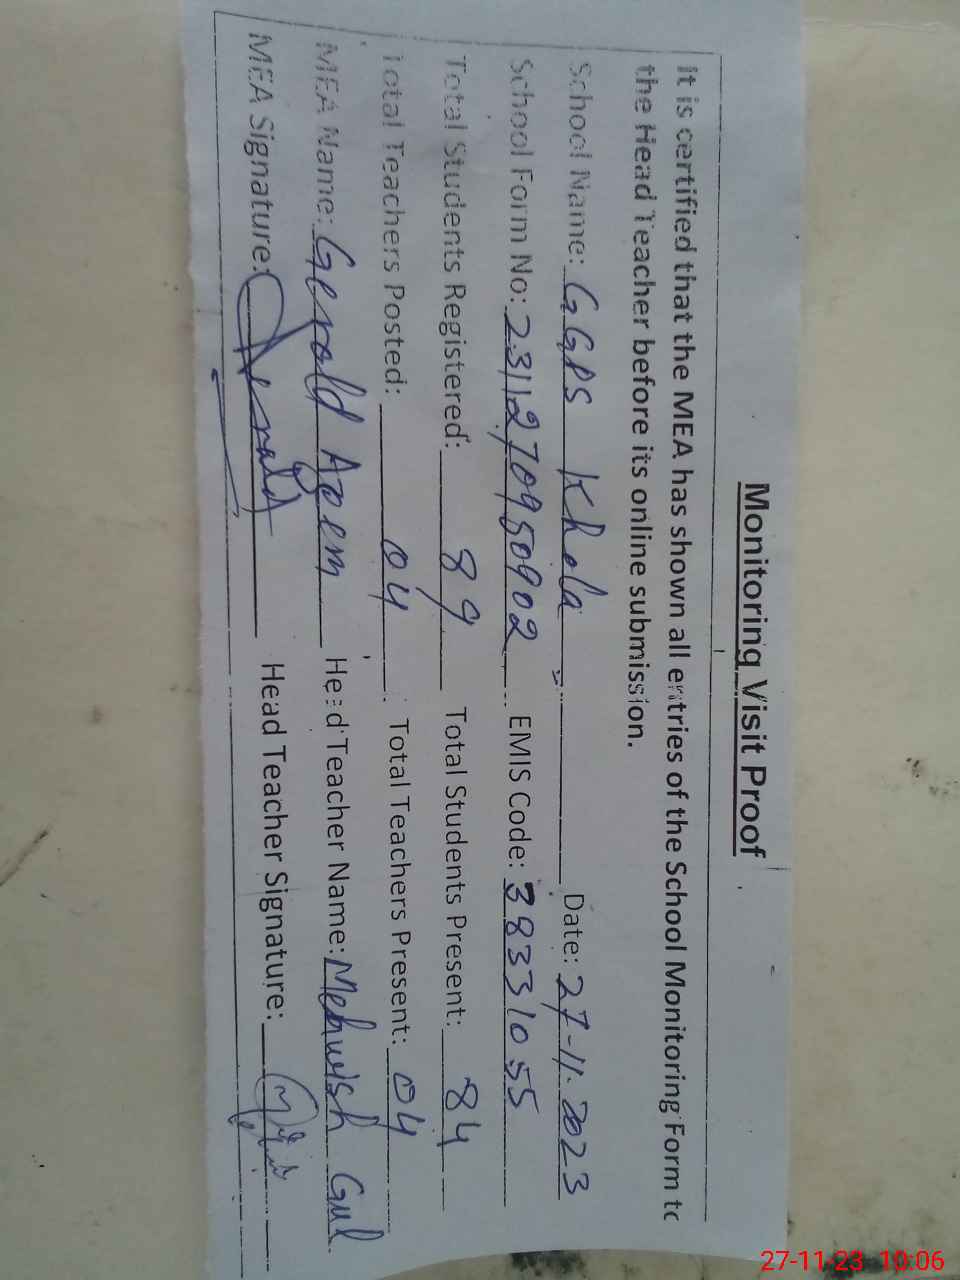 Monitoring Visit Proof
It is certified that the MEA has shown all entries of the School Monitoring Form to
the Head Teacher before its online submission.
School Name: GGPS Khola Date: 27-11-2023
School Form No: 231127095090 2 EMIS Code: 38331055
Total Students Registered: 89 Total Students Present: 84
Total Teachers Posted: 04 Total Teachers Present: 04
MEA Name: Gerald Azeem Head Teacher Name: Mehwish Gul
MEA Signature: Gerald Head Teacher Signature:
27-11-23 10:06